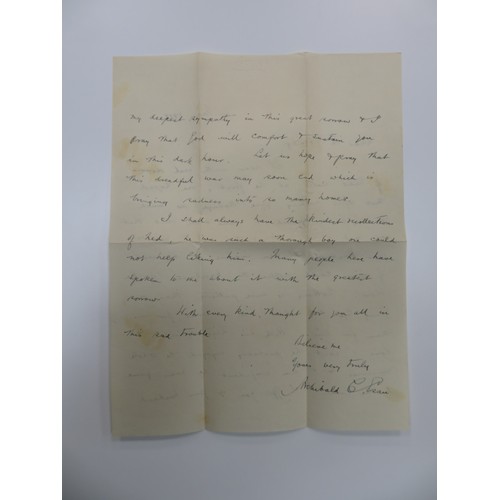 my deepest sympathy in this great sorrow & I
pray that God will comfort & sustain you
in this dark hour. Let us hope & pray that
this dreadful war may soon end which is
bringing sadness into so many homes.
I shall always have the kindest recollection
of he was such a thorough boy one could
not help liking him. Many people here have
spoken to me about it with the greatest
sorrow.
With every kind thought for you all in
this sad trouble
Believe me
Yours very truly
Archibald C.